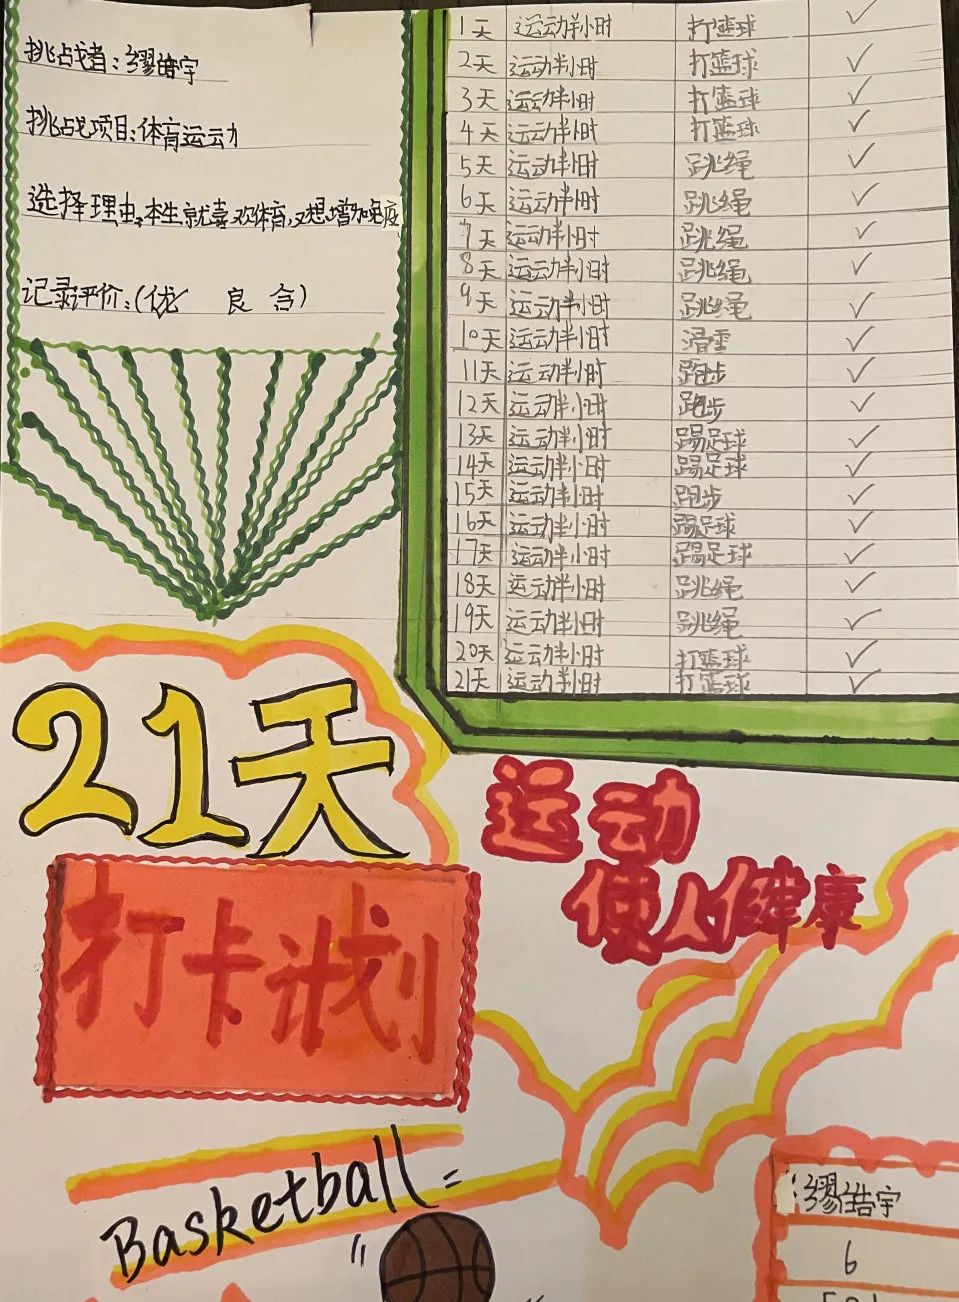 挑战者:缪皓宇
挑战项目:体育运动
选择理由:本生就喜欢体育,又想增加免疫
记录评价:(优 良 含)
1天 运动半小时 打篮球 ✓
2天 运动半小时 打篮球 ✓
3天 运动半小时 打篮球 ✓
4天 运动半小时 打篮球 ✓
5天 运动半小时 跳绳 ✓
6天 运动半小时 跳绳 ✓
7天 运动半小时 跳绳 ✓
8天 运动半小时 跳绳 ✓
9天 运动半小时 跳绳 ✓
10天 运动半小时 滑雪 ✓
11天 运动半小时 跑步 ✓
12天 运动半小时 跑步 ✓
13天 运动半小时 踢足球 ✓
14天 运动半小时 踢足球 ✓
15天 运动半小时 跑步 ✓
16天 运动半小时 踢足球 ✓
17天 运动半小时 踢足球 ✓
18天 运动半小时 跳绳 ✓
19天 运动半小时 跳绳 ✓
20天 运动半小时 打篮球 ✓
21天 运动半小时 打篮球 ✓
21天
打卡计划
运动
使人健康
Basketball
缪皓宇
6